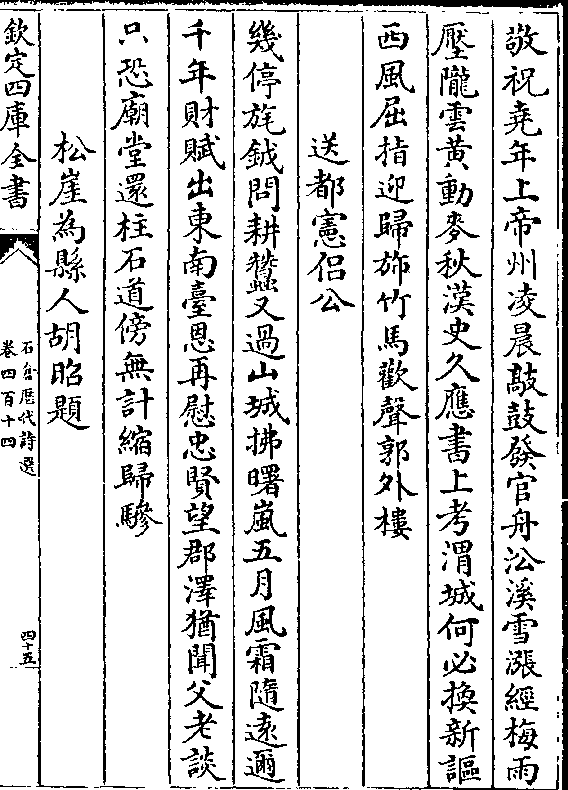 敬祝堯年上帝州凌晨敲鼓發官舟沿溪雪漲經梅雨
壓隴雲黃動麥秋漢史久應書上考渭城何必換新謳
西風屈指迎歸斾竹馬歡聲郭外樓
送都憲侣公
幾停旄鉞問耕蠶又過山城拂曙嵐五月風霜隨逺邇
千年財賦出東南臺恩再慰忠賢望郡澤猶聞父老談
只恐廟堂還柱石道傍無計縮歸驂
松崖為縣人胡昭題
欽定四庫全書
石倉歷代詩選
卷四百十四
四十五